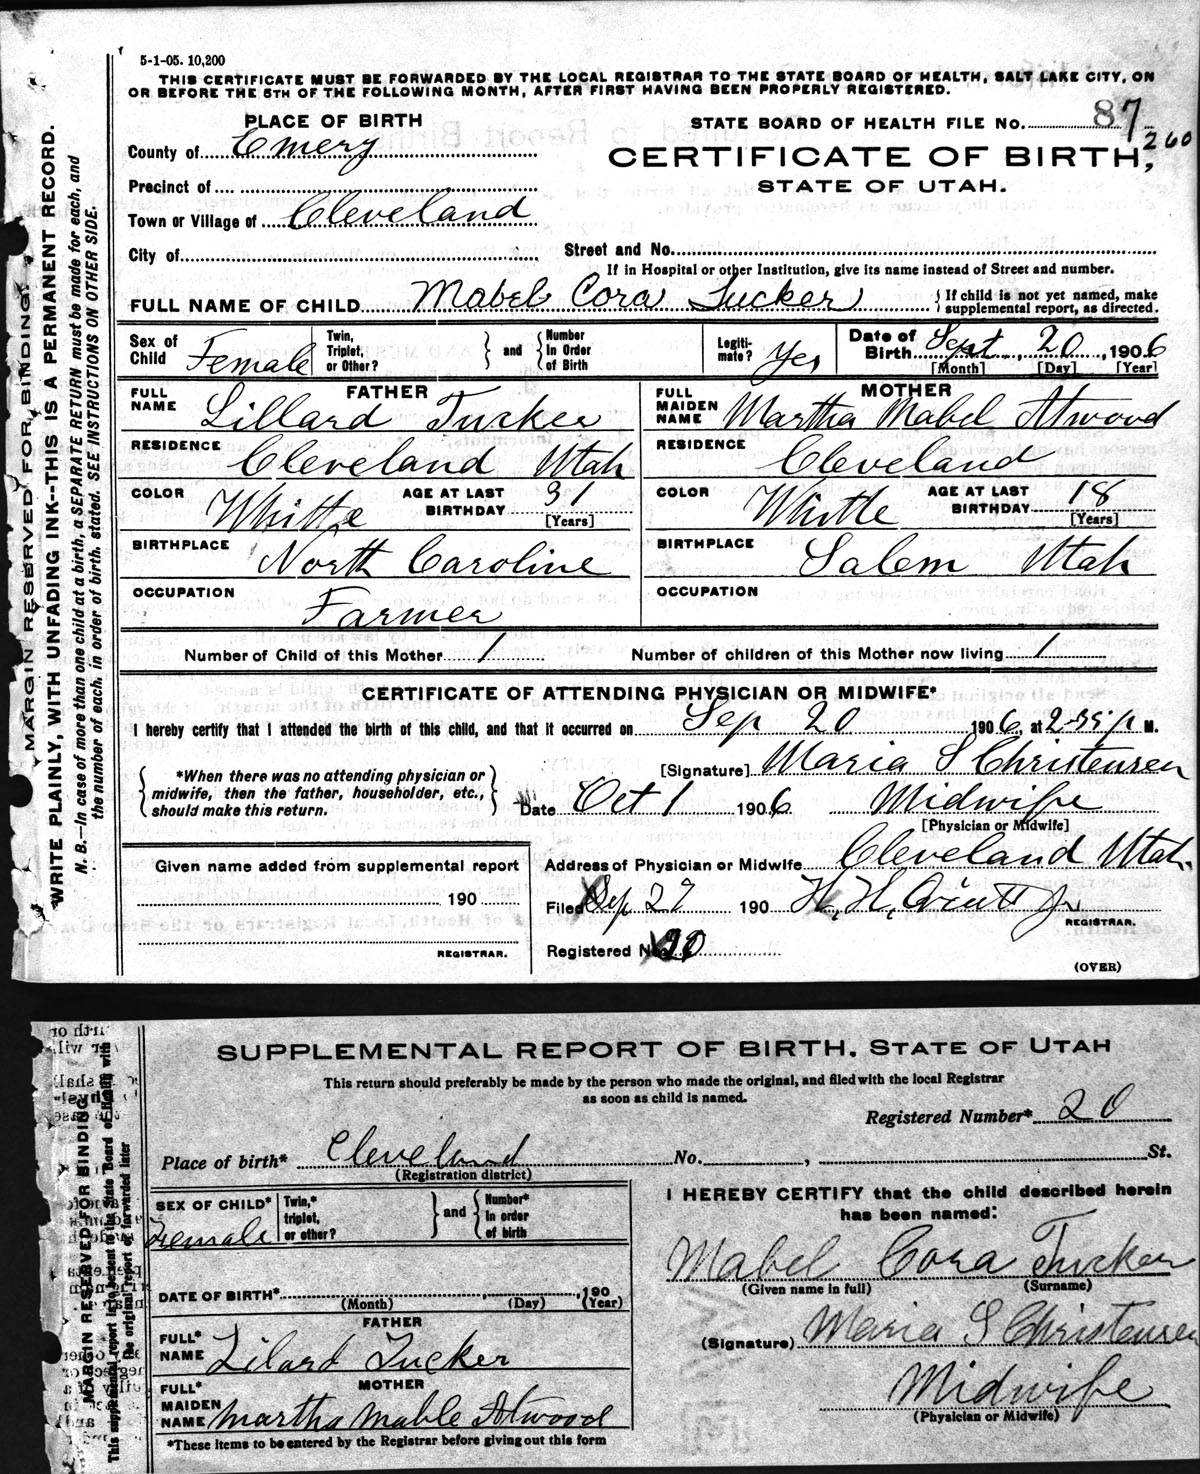 5-1-05. 10,200
THIS CERTIFICATE MUST BE FORWARDED BY THE LOCAL REGISTRAR TO THE STATE BOARD OF HEALTH, SALT LAKE CITY, ON
OR BEFORE THE 5TH OF THE FOLLOWING MONTH, AFTER FIRST HAVING BEEN PROPERLY REGISTERED.
PLACE OF BIRTH
STATE BOARD OF HEALTH FILE No. 87
260
County of Emery
CERTIFICATE OF BIRTH,
STATE OF UTAH.
Precinct of
Town or Village of Cleveland
City of
Street and No.
If in Hospital or other Institution, give its name instead of Street and number.
FULL NAME OF CHILD Mabel Cora Tucker
{ If child is not yet named, make
supplemental report, as directed.
Sex of Child Female
Twin, Triplet, or Other? } and { Number In Order of Birth
Legiti-mate? Yes
Date of Birth Sept, 20, 1906
[Month] [Day] [Year]
FATHER
FULL NAME Lillard Tucker
RESIDENCE Cleveland Utah
COLOR Whitte AGE AT LAST BIRTHDAY 31 [Years]
BIRTHPLACE North Caroline
OCCUPATION Farmer
MOTHER
FULL MAIDEN NAME Martha Mabel Atwood
RESIDENCE Cleveland
COLOR Whitte AGE AT LAST BIRTHDAY 18 [Years]
BIRTHPLACE Salem Utah
OCCUPATION
Number of Child of this Mother 1 Number of children of this Mother now living 1
CERTIFICATE OF ATTENDING PHYSICIAN OR MIDWIFE*
I hereby certify that I attended the birth of this child, and that it occurred on Sep 20 1906, at p M.
{ *When there was no attending physician or
midwife, then the father, householder, etc.,
should make this return. }
[Signature] Maria S Christensen
Date Oct 1 1906 Midwife
[Physician or Midwife]
Given name added from supplemental report
190
REGISTRAR.
Address of Physician or Midwife Cleveland Utah.
Filed Sep 27 190 H. H. Jr
REGISTRAR.
Registered No. 20
(OVER)
MARGIN RESERVED FOR BINDING.
WRITE PLAINLY, WITH UNFADING INK--THIS IS A PERMANENT RECORD.
N. B.—In case of more than one child at a birth, a SEPARATE RETURN must be made for each, and
the number of each, in order of birth, stated. SEE INSTRUCTIONS ON OTHER SIDE.
SUPPLEMENTAL REPORT OF BIRTH, STATE OF UTAH
This return should preferably be made by the person who made the original, and filed with the local Registrar
as soon as child is named.
Registered Number* 20
Place of birth* Cleveland No. , St.
(Registration district)
SEX OF CHILD* Female
Twin,* triplet, or other? } and { Number* In order of birth
DATE OF BIRTH* , 190
(Month) (Day) (Year)
FATHER
FULL* NAME Lilard Tucker
MOTHER
FULL* MAIDEN NAME Martha Mable Atwood
*These items to be entered by the Registrar before giving out this form
I HEREBY CERTIFY that the child described herein
has been named:
Mabel Cora Tucker
(Given name in full) (Surname)
(Signature) Maria S Christensen
Midwife
(Physician or Midwife)
MARGIN RESERVED FOR BINDING
This supplemental report is to be sent to the State Board of Health with
the original report or forwarded later